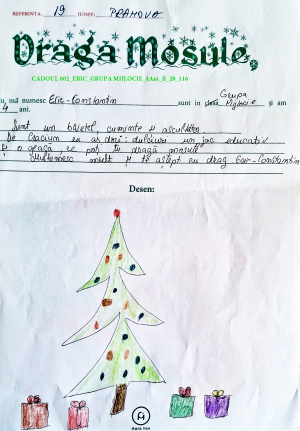 REFERINTA: 19 JUDET: PRAHOVA
Dragă Moșule,
CADOUL 602_ERIC_GRUPA MIJLOCIE_4Ani_B_28_116
mă numesc Eric-Constantin sunt in clasa Grupa Mijlocie și am
4 ani.
Sunt un băiețel cuminte și ascultător
De Crăciun eu aș dori: dulciuri un joc educativ
și o geacă, te rog dragă moșule
Mulțumesc mult și te aștept cu drag Eric-Constantin
Desen: